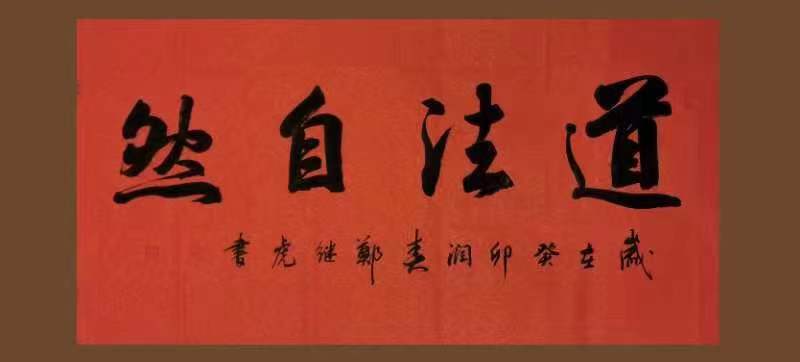 道法自然
歲在癸卯润春鄭继虎書